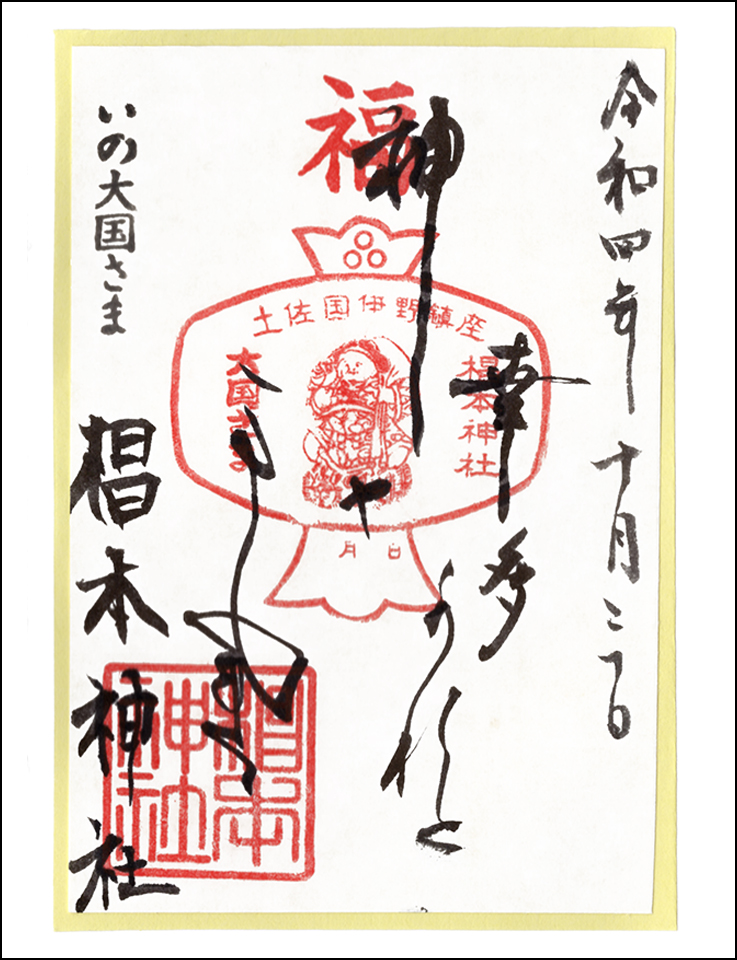 令和四年十月
幸多かれと
神
福
土佐国伊野鎮座
椙本神社
大国さま
月 日
いの大国さま
椙本神社
椙本神社